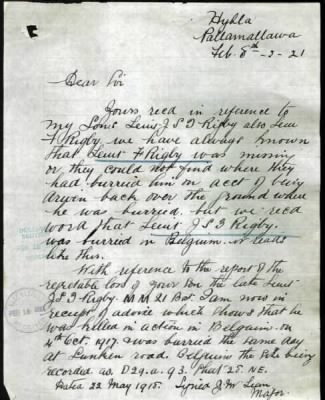 Hylla
Pallamallawa
Feb. 8th - 2 - 21
Dear Sir
Yours recd in reference to
my Sons Leiut J S D Rigby also Leiut
F Rigby we have always known
that Leiut F Rigby was missing
or they could not find where they
had burried him on acct of being
driven back over the ground where
he was burried. but we recd
word that Leiut J S D Rigby.
was burried in Belgium. it leads
like this.
With reference to the report of the
regretable loss of your Son the late Leiut
J S D Rigby. M.M 21 Bat. I am now in
receipt of advice which shows that he
was killed in action in Belguim on
4th Oct. 1917. & was burried the same day
at Sunken road. Belguim the Site being
recorded as D 29. a. 93. Sheet 28. NE.
Dated 22 May 1918. Signed J. M Lean
Major.